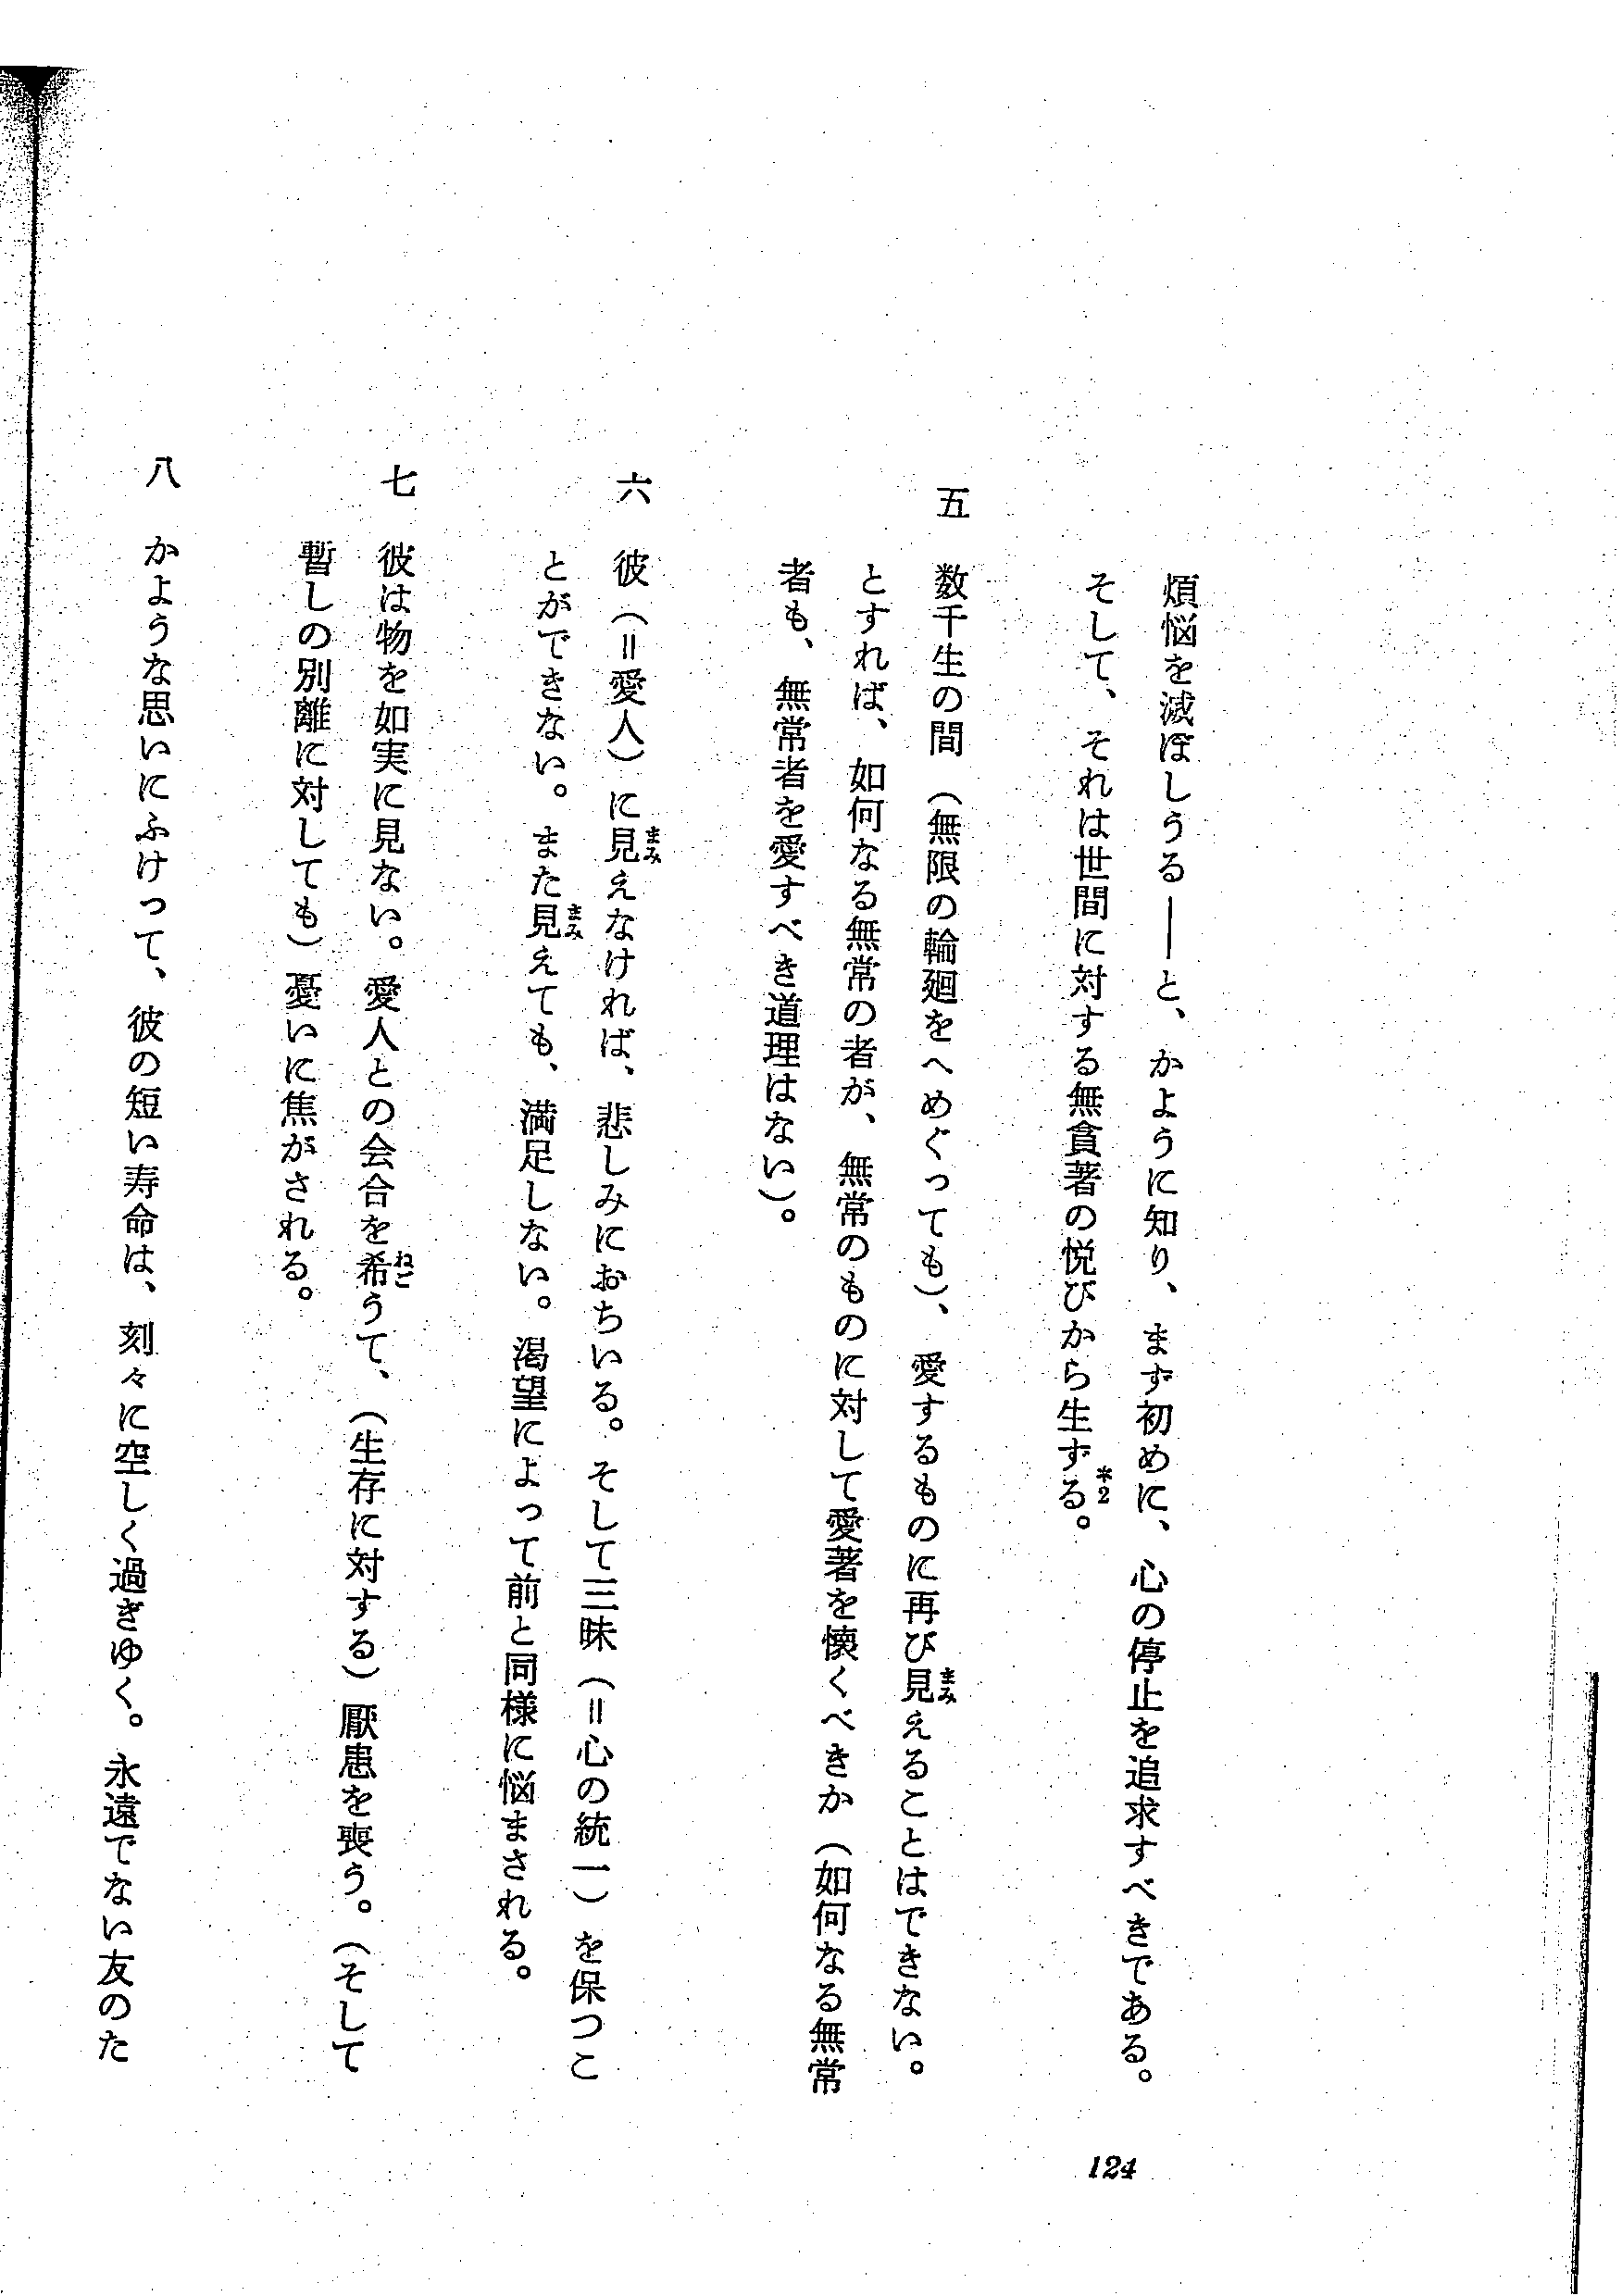 煩悩を滅ぼしうる――と、かように知り、まず初めに、心の停止を追求すべきである。
そして、それは世間に対する無貪著の悦びから生ずる*2。
五　数千生の間（無限の輪廻をへめぐっても）、愛するものに再び見えることはできない。
とすれば、如何なる無常の者が、無常のものに対して愛著を懐くべきか（如何なる無常
者も、無常者を愛すべき道理はない）。
六　彼（＝愛人）に見えなければ、悲しみにおちいる。そして三昧（＝心の統一）を保つこ
とができない。また見えても、満足しない。渇望によって前と同様に悩まされる。
七　彼は物を如実に見ない。愛人との会合を希うて、（生存に対する）厭患を喪う。（そして
暫しの別離に対しても）憂いに焦がされる。
八　かような思いにふけって、彼の短い寿命は、刻々に空しく過ぎゆく。永遠でない友のた
124